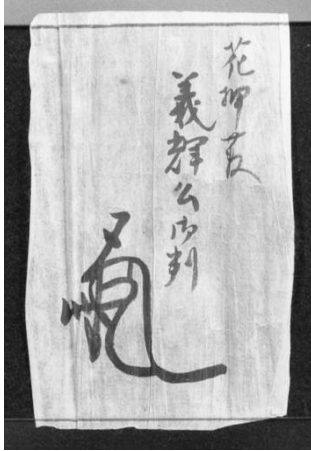 花押
義輝公御判